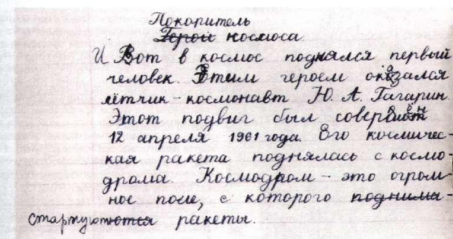 Покоритель
Герой космоса
И Вот в космос поднялся первый
человек. Этим героем оказался
лётчик-космонавт Ю. А. Гагарин
Этот подвиг был соверш
12 апреля 1961 года. Его космичес-
кая ракета поднялась с космо-
дрома. Космодром - это огром-
ное поле, с которого поднима-
стартуют ются ракеты.